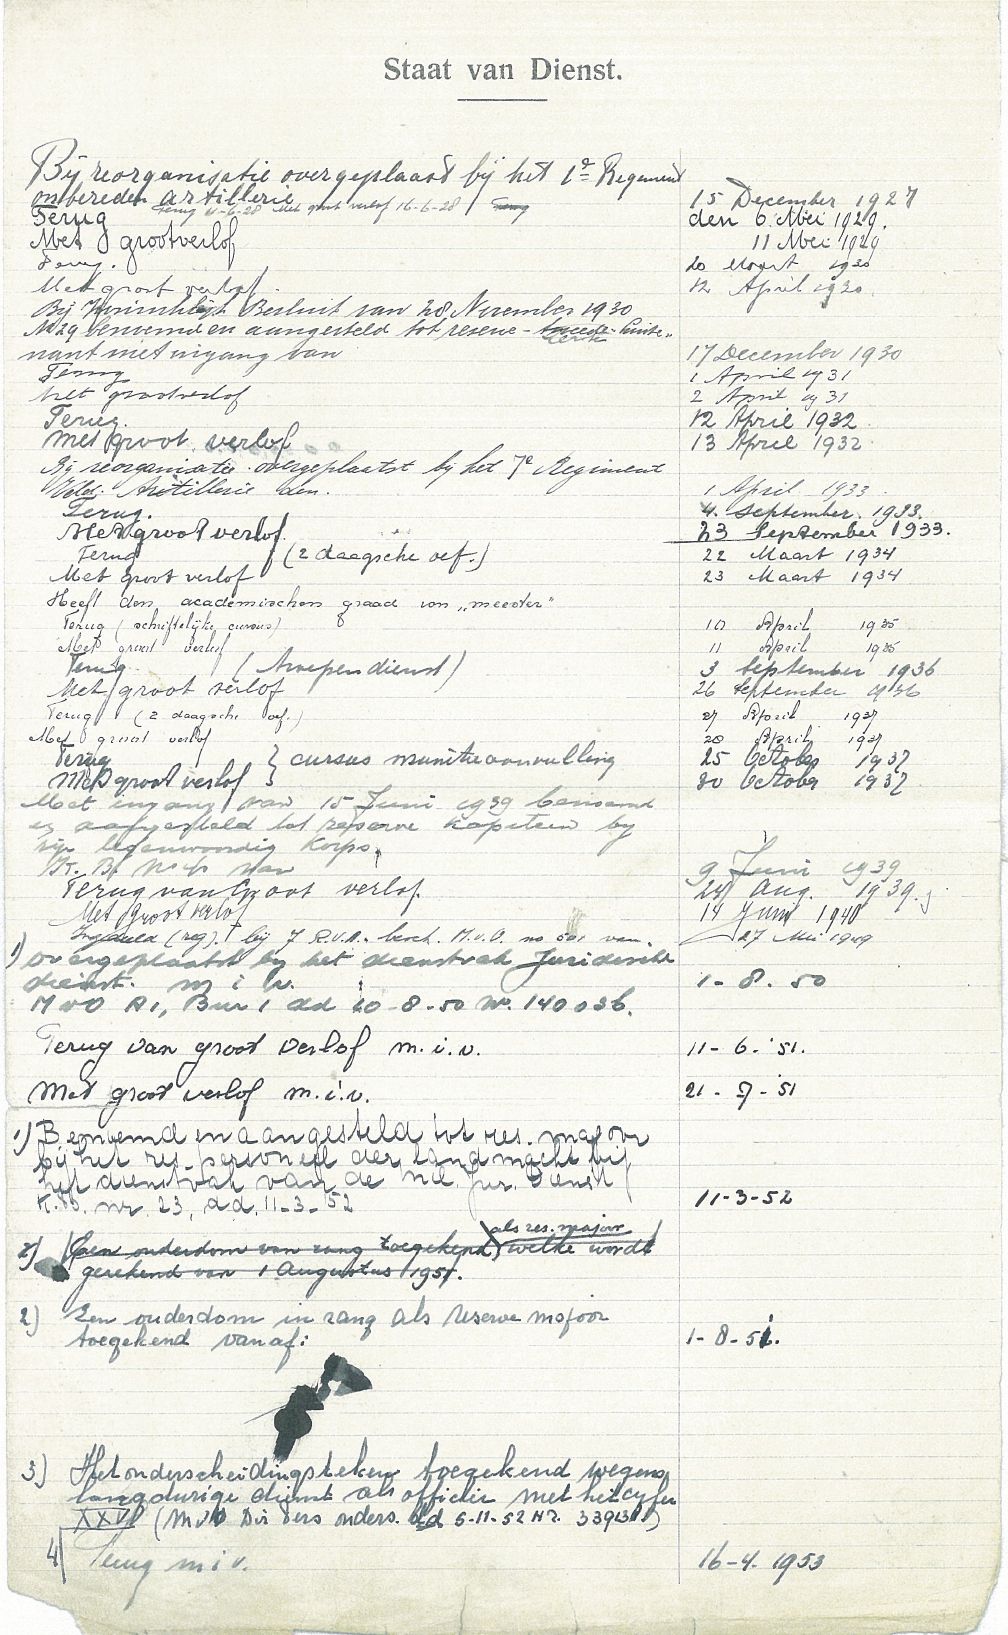 Staat van Dienst.
Bij reorganisatie overgeplaatst bij het 1e Regiment
onbereden artillerie 15 December 1927
Terug 11-6-28 Met groot verlof 16-6-28 Terug
Terug den 6 Mei 1929.
Met grootverlof 11 Mei 1929
Terug. 20 Maart 1930
Met groot verlof. 12 April 1930
Bij Koninklijk Besluit van 28 November 1930
No 29 benoemd en aangesteld tot reserve-tweede-luite-
nant met ingang van 17 December 1930
Terug 1 April 1931
Met grootverlof 2 April 1931
Terug. 12 April 1932
Met groot verlof 13 April 1932
Bij reorganisatie overgeplaatst bij het 7e Regiment
Veld. Artillerie den. 1 April 1933
Terug. 4. September. 1933.
Met groot verlof. 23 September 1933.
Terug (2 daagsche oef.) 22 Maart 1934
Met groot verlof 23 Maart 1934
Heeft den academischen graad van „meester"
Terug (schriftelijke cursus) 10 April 1935
Met groot verlof 11 April 1935
Terug (troependienst) 3 September 1936
Met groot verlof 26 September 1936
Terug (2 daagsche oef.) 27 April 1937
Met groot verlof 28 April 1937
Terug } cursus munitieaanvulling 25 October 1937
Met groot verlof } 30 October 1937
Met ingang van 15 Juni 1939 benoemd
en aangesteld tot reserve kapitein bij
zijn tegenwoordig Korps.
K.B. van 9 Juni 1939
Terug van Groot verlof. 24 Aug. 1939.
Met Groot verlof 14 Juni 1940
Ingedeeld (reg). bij 7 R.V.A. besch. M.v.O. no 501 van. 27 Mei 1949
1) Overgeplaatst bij het dienstvak Juridische
dienst. m i v. 1-8.50
M v O A1, Bur 1 dd 10-8-50 Nr. 140036.
Terug van groot verlof m.i.v. 11-6-'51.
Met groot verlof m.i.v. 21-7-'51
1) Benoemd en aangesteld tot res. majoor
bij het res. personeel der landmacht bij
het dienstvak van de Mil. Jur. Dienst
K.B. nr. 23, dd. 11-3-'52 11-3-52
als res. majoor
2) (Een ouderdom van rang toegekend) welke wordt
gerekend van 1 Augustus 1951.
2) Een ouderdom in rang als reserve majoor
toegekend vanaf: 1-8-51.
3) Het onderscheidingsteken toegekend wegens
langdurige dienst als officier met het cijfer
XXV (MvO Dir Pers onders. dd 5-11-52 Nr.
4) Terug m i v. 16-4. 1953